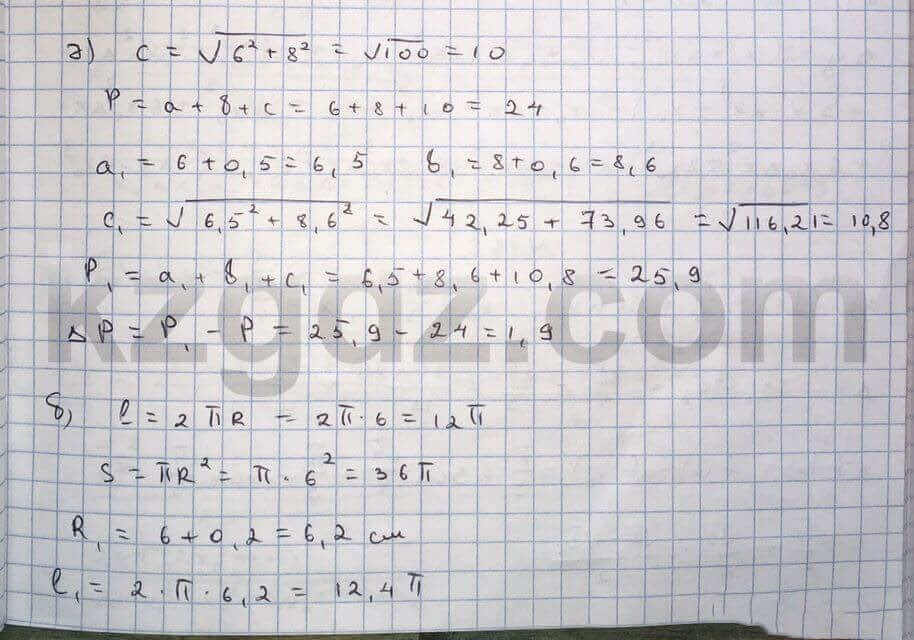 а) c = √6² + 8² = √100 = 10
P = a + b + c = 6 + 8 + 10 = 24
a₁ = 6 + 0,5 = 6,5 b₁ = 8 + 0,6 = 8,6
c₁ = √6,5² + 8,6² = √42,25 + 73,96 = √116,21 = 10,8
P₁ = a₁ + b₁ + c₁ = 6,5 + 8,6 + 10,8 = 25,9
ΔP = P₁ - P = 25,9 - 24 = 1,9
kzgdz.com
б) l = 2πR = 2π·6 = 12π
S = πR² = π·6² = 36π
R₁ = 6 + 0,2 = 6,2 см
l₁ = 2·π·6,2 = 12,4π